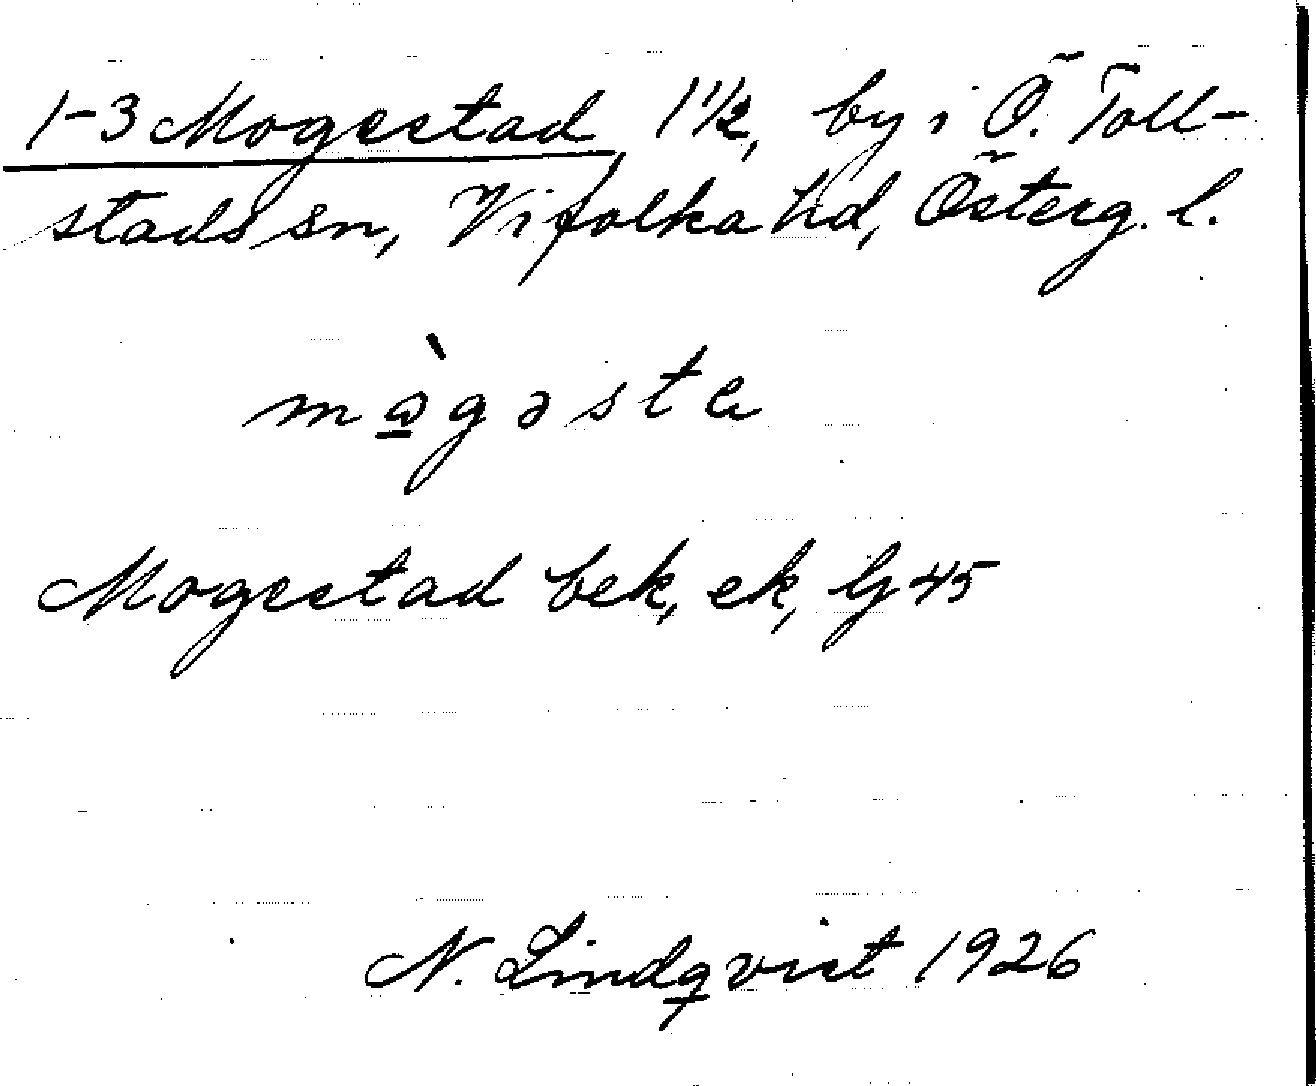 1-3 Mogestad 1 1/2, by i Ö. Toll-
stads sn, Vifolka hd, Österg. l.
mɷ̀gəsta
Mogestad bek, ek, lj 45
N. Lindqvist 1926